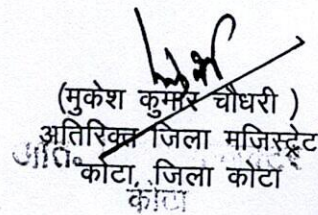 (मुकेश कुमार चौधरी )
अतिरिक्त जिला मजिस्ट्रेट
कोटा, जिला कोटा
कोटा